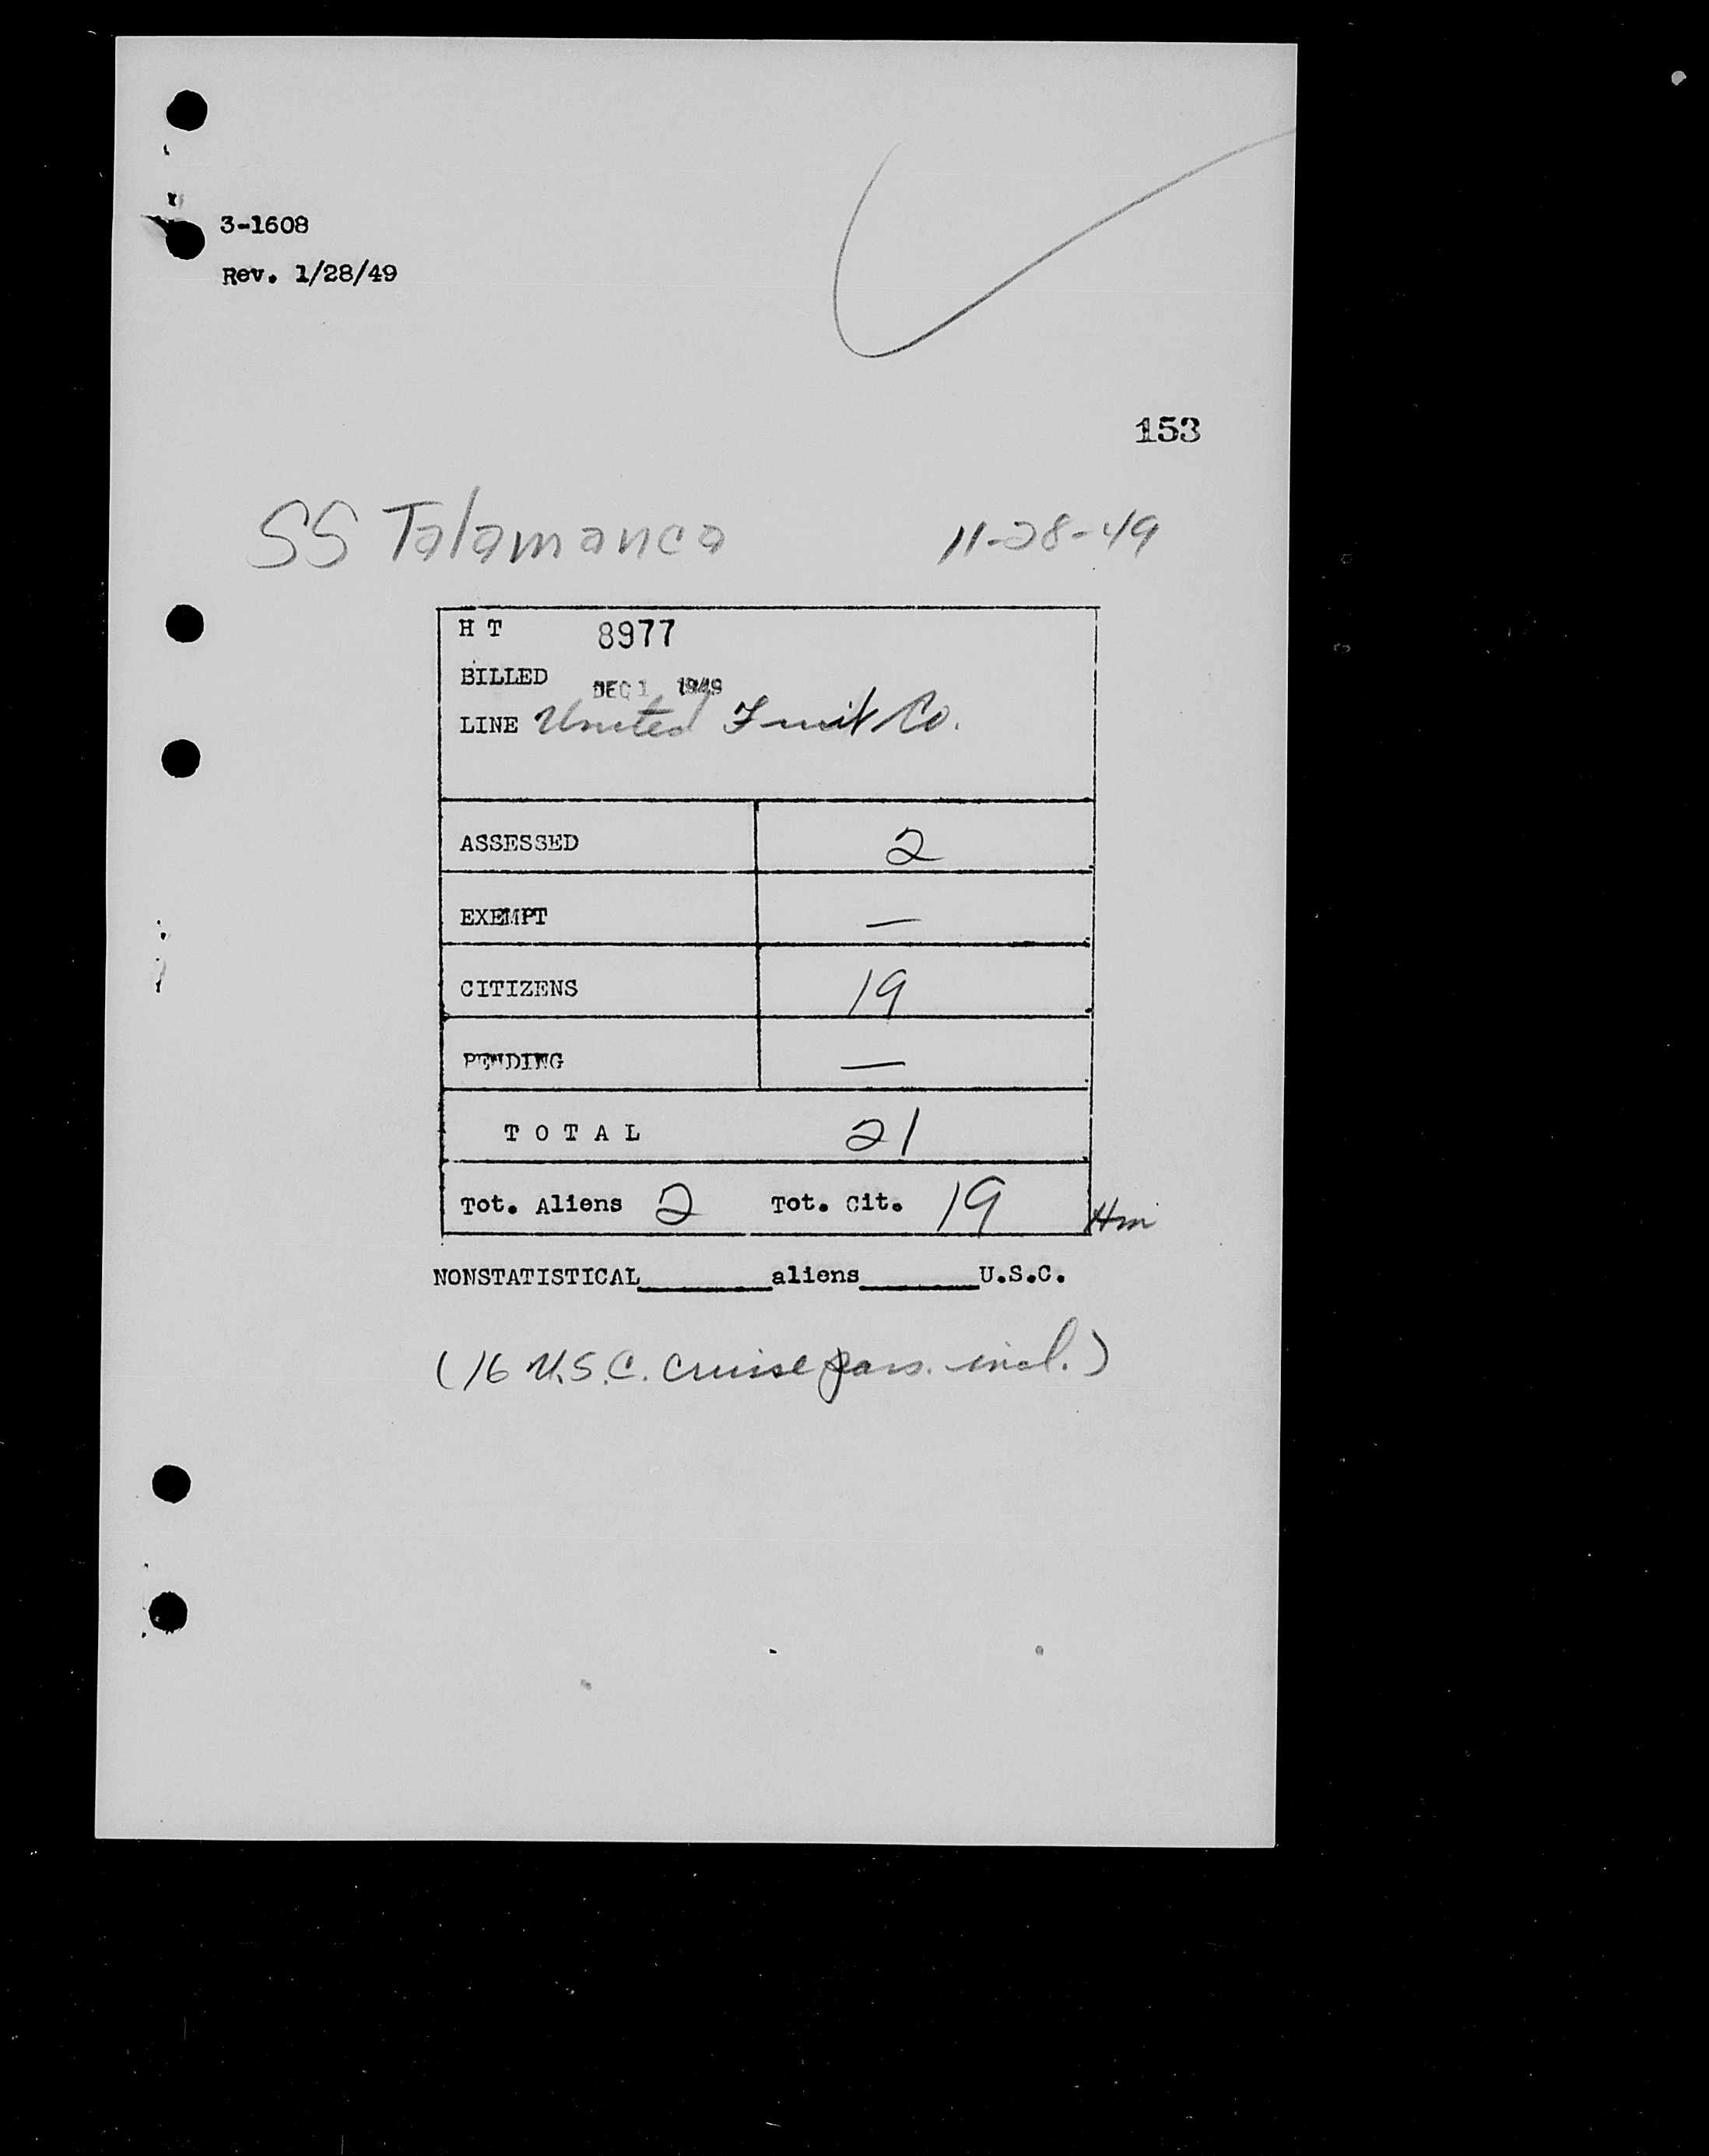 3-1608
Rev. 1/28/49
153
SS Talamanca 11-28-49
H T 8977
BILLED DEC 1 1949
LINE United Fruit Co.
ASSESSED 2
EXEMPT —
CITIZENS 19
PENDING —
T O T A L 21
Tot. Aliens 2 Tot. Cit. 19 Hm
NONSTATISTICAL________aliens_______U.S.C.
(16 U.S.C. cruise pass. incl.)